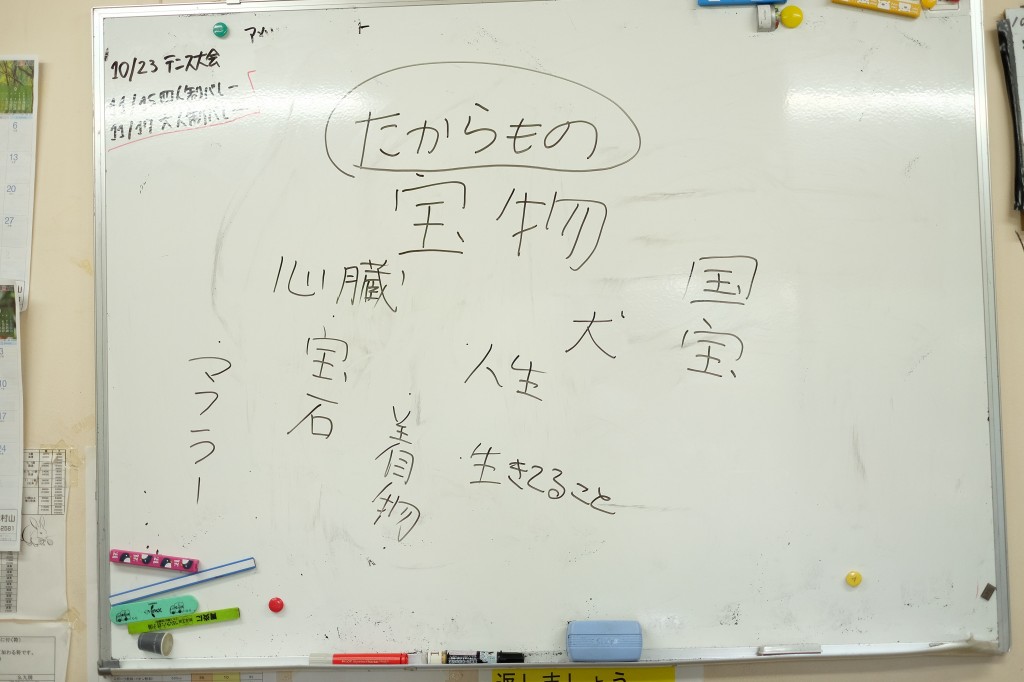 10/23 テニス大会
11/15 四人制バレー
11/17 六人制バレー
たからもの
宝物
心臓
国宝
犬
宝石
人生
マフラー
着物
生きてること
返しましょう